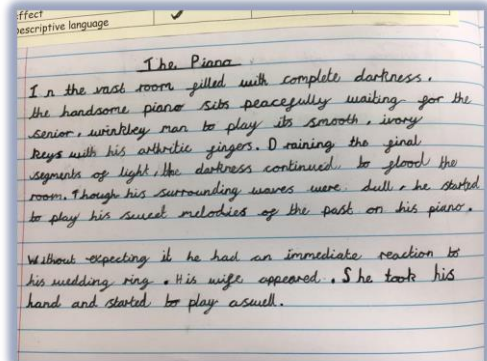 effect
Descriptive language
The Piano
In the vast room filled with complete darkness.
the handsome piano sits peacefully waiting for the
senior, wrinkley man to play its smooth, ivory
keys with his arthritic fingers. Draining the final
segments of light, the darkness continued to flood the
room. Though his surrounding waves were dull, he started
to play his sweet melodies of the past on his piano.
Without expecting it he had an immediate reaction to
his wedding ring. His wife appeared. She took his
hand and started to play aswell.